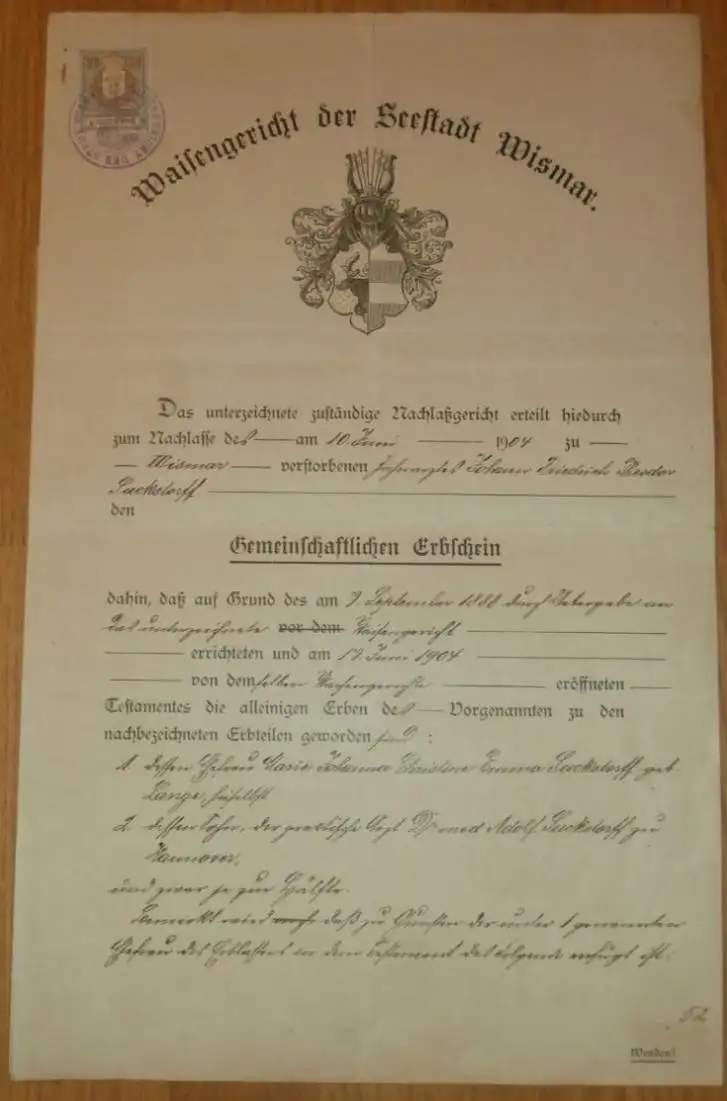 Waisengericht der Seestadt Wismar.
Das unterzeichnete zuständige Nachlaßgericht erteilt hiedurch
zum Nachlasse des am 10. Juni 1904 zu
Wismar verstorbenen Johann Friedrich Theodor
Sackstorff
den
Gemeinschaftlichen Erbschein
dahin, daß auf Grund des am 7. September 1888 durch Uebergabe an
das unterzeichnete vor dem Waisengericht
errichteten und am 17. Juni 1904
von demselben Waisengerichte eröffneten
Testamentes die alleinigen Erben des Vorgenannten zu den
nachbezeichneten Erbteilen geworden sind:
1. dessen Ehefrau Marie Johanna Christine Emma Sackstorff geb.
Lange, hieselbst
2. dessen Sohn, der practische Arzt Dr med Adolf Sackstorff zu
Hannover,
und zwar je zur Hälfte.
Bemerkt wird noch daß zu Gunsten der unter 1 genannten
Ehefrau des Erblassers in dem Testament das Folgende verfügt ist:
52
Wenden!